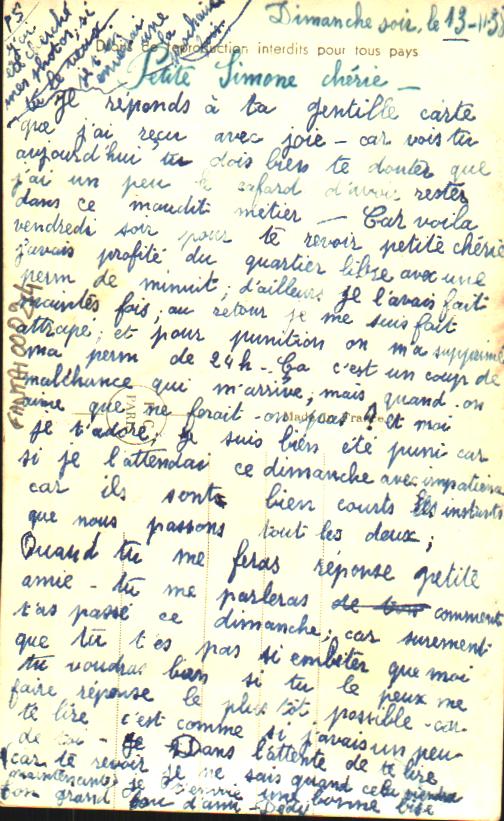 Dimanche soir, le 13-11-38
PS
j'ai
cherché
mes photos, si
tu le veux
je t'en
une
la prochaine
fois
Droits de reproduction interdits pour tous pays
Petite Simone chérie -
Je réponds à ta gentille carte
que j'ai reçu avec joie - car vois tu
aujourd'hui tu dois bien te douter que
j'ai un peu le cafard d'avoir rester
dans ce maudit métier - Car voila
vendredi soir pour te revoir petite chérie
j'avais profité du quartier libre avec une
perm de minuit; d'ailleurs je l'avais fait
maintes fois, au retour je me suis fait
attrapé; et pour punition on m'a supprimé
ma perm de 24h - Ça c'est un coup de
malchance qui m'arrive; mais quand on
aime que ne ferait-on pas ? et moi
je t'adore; Je suis bien été puni car
si je l'attendai ce dimanche avec impatience
car ils sont bien courts les instants
que nous passons tout les deux;
Quand tu me feras réponse petite
amie - tu me parleras comment
t'as passé ce dimanche; car surement
que tu t'es pas si embêter que moi
tu voudras bien si tu le peux me
faire réponse le plus tôt possible - car
te lire c'est comme si j'avais un peu
de toi - Dans l'attente de te lire
(car te revoir je ne sais quand cela viendra
maintenant) je t'envoie une bonne bise
ton grand fou d'ami Dédé
Made in France
P.C
PARIS
FANTAI000234